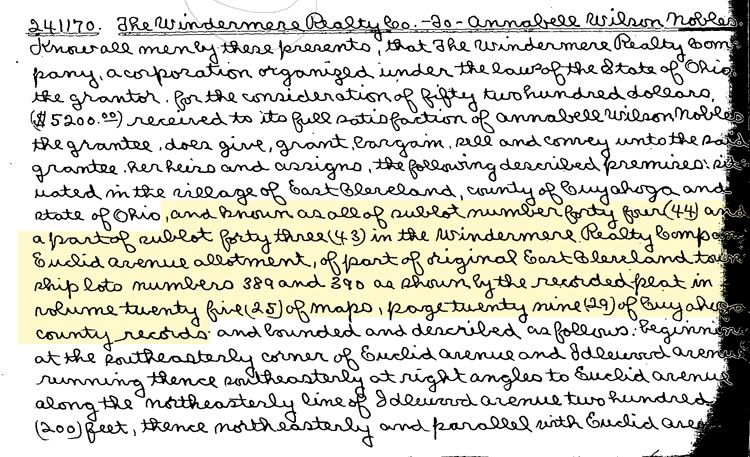 241170. The Windermere Realty Co. -To- Annabell Wilson Nobles.
Know all men by these presents, that The Windermere Realty Com-
pany, a corporation organized under the laws of the State of Ohio
the grantor, for the consideration of fifty two hundred dollars,
($5200.00) received to its full satisfaction of Annabell Wilson Nobles
the grantee, does give, grant, bargain, sell and convey unto the said
grantee, her heirs and assigns, the following described premises: sit
uated in the village of East Cleveland, county of Cuyahoga and
state of Ohio, and known as all of sublot number forty four (44) and
a part of sublot forty three (43) in the Windermere Realty Compan
Euclid avenue allotment, of part of original East Cleveland town
ship lots numbers 389 and 390 as shown by the recorded plat in
volume twenty five (25) of maps, page twenty nine (29) of Cuyahoga
county records and bounded and described as follows: beginnin
at the southeasterly corner of Euclid avenue and Idlewood avenu
running thence southeasterly at right angles to Euclid avenue
along the northeasterly line of Idlewood avenue two hundred
(200) feet, thence northeasterly and parallel with Euclid aven